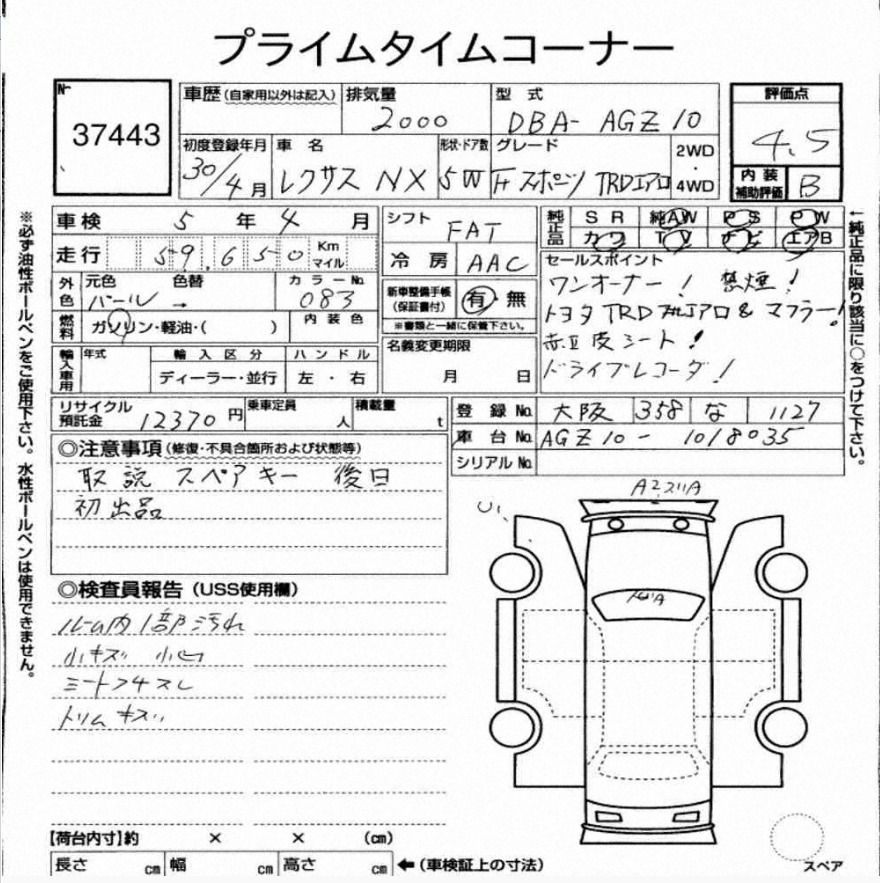 プライムタイムコーナー
No
37443
車歴(自家用以外は記入) 排気量 型式 評価点
2000 DBA- AGZ10 4.5
初度登録年月 車名 形状・ドア数 グレード 2WD・4WD 内装補助評価
30/4月 レクサス NX 5W Fスポーツ TRDエアロ B
車検 5年 4月 シフト FAT 純正品 SR 純AW PS PW
走行 59,650 Km マイル 冷房 AAC カワ TV ナビ エアB
外色 元色 色替 カラーNo. 新車整備手帳(保証書付) 有・無 セールスポイント
パール → 083 ※書類と一緒に保管下さい。
ワンオーナー! 禁煙!
燃料 ガソリン・軽油・( ) 内装色
トヨタ TRD エアロ & マフラー!
輸入車用 年式 輸入区分 ハンドル 名義変更期限
赤皮シート!
ディーラー・並行 左・右 月 日
ドライブレコーダ!
リサイクル預託金 12370円 乗車定員 人 積載量 t
登録No. 大阪 358 な 1127
車台No. AGZ10- 1018035
シリアルNo.
◎注意事項(修復・不具合箇所および状態等)
取説 スペアキー 後日
初出品
A2 スリA
U1
◎検査員報告(USS使用欄)
ルーム内1部汚れ
小キズ 小凹
シートフチスレ
トリムキズ
【荷台内寸】約 × × (cm)
長さ cm 幅 cm 高さ cm ←(車検証上の寸法)
スペア
※必ず油性ボールペンをご使用下さい。水性ボールペンは使用できません。
←純正品に限り該当に○をつけて下さい。